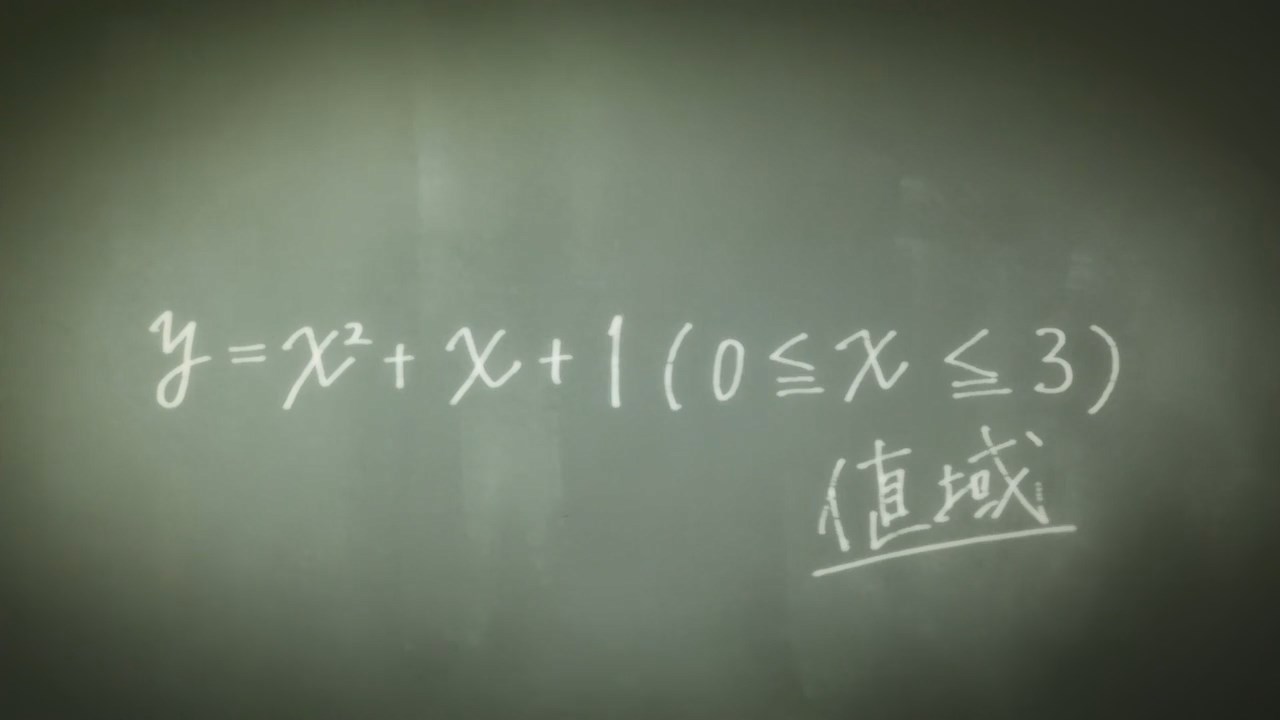 y = x² + x + 1 (0 ≦ x ≦ 3)
値域